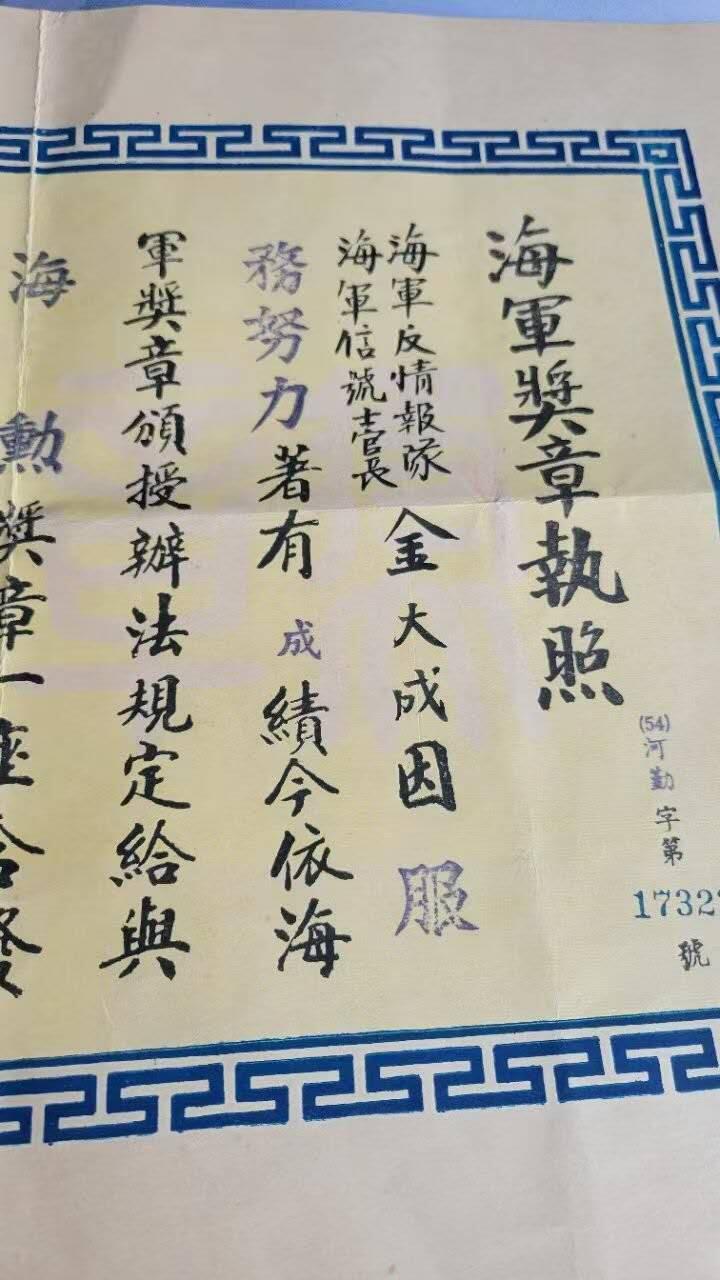 海軍獎章執照
(54)河勤字第1732號
海軍反情報隊
海軍信號士官長
金大成因服
務努力著有成績今依海
軍獎章頒授辦法規定給與
海勳獎章一座合發